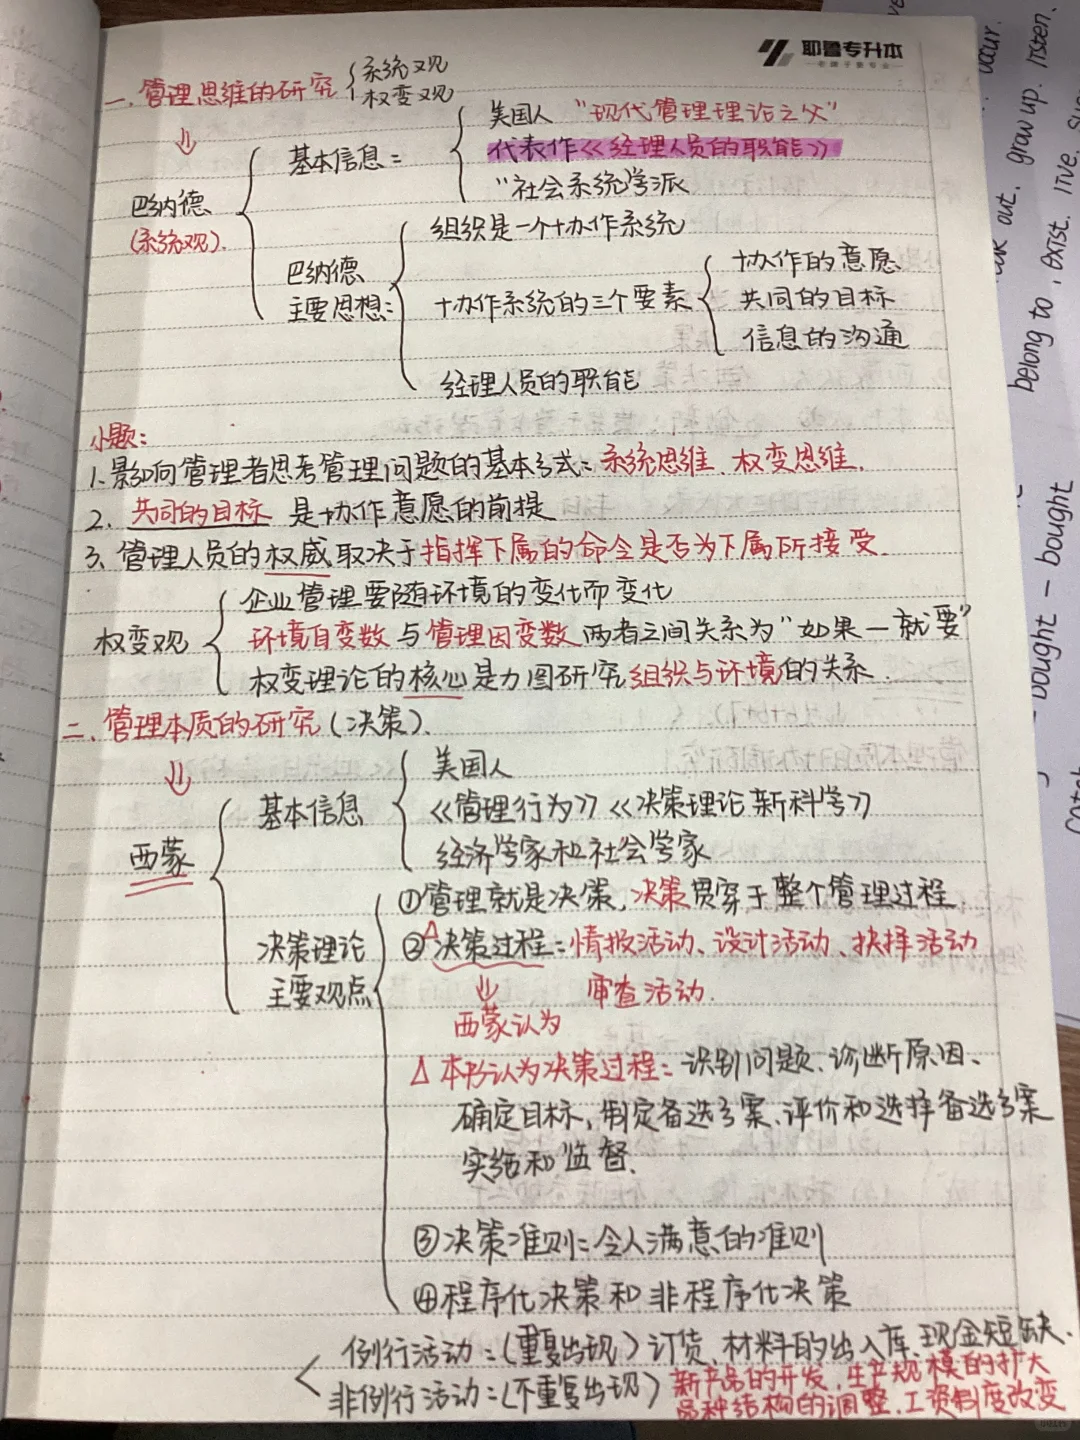 耶鲁专升本
一、管理思维的研究 { 系统观
权变观
美国人 "现代管理理论之父"
基本信息:
代表作《经理人员的职能》
"社会系统"学派
巴纳德
(系统观).
组织是一个协作系统
巴纳德
主要思想:
协作系统的三个要素
协作的意愿
共同的目标
信息的沟通
经理人员的职能
小题:
1、影响管理者思考管理问题的基本方式: 系统思维、权变思维.
2、共同的目标 是协作意愿的前提
3、管理人员的权威取决于指挥下属的命令是否为下属所接受.
企业管理要随环境的变化而变化
权变观
环境自变数与管理因变数两者之间关系为"如果—就要"
权变理论的核心是力图研究组织与环境的关系.
二、管理本质的研究(决策).
美国人
基本信息
《管理行为》《决策理论新科学》
经济学家和社会学家
西蒙
①管理就是决策,决策贯穿于整个管理过程
决策理论
主要观点
②△决策过程: 情报活动、设计活动、抉择活动
审查活动.
西蒙认为
△本书认为决策过程: 识别问题、诊断原因、
确定目标,制定备选方案、评价和选择备选方案
实施和监督.
③决策准则: 令人满意的准则
④程序化决策和非程序化决策
例行活动:(重复出现)订货、材料的出入库、现金短缺.
非例行活动:(不重复出现)新产品的开发、生产规模的扩大
品种结构的调整、工资制度改变
occur.
out. grow up. listen.
belong to, exist. live.
bought - bought
bought -